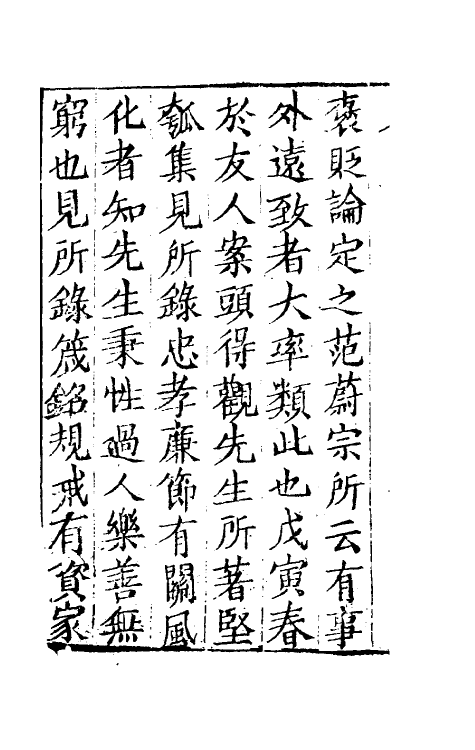 褒貶論定之范蔚宗所云有事
外遠致者大率類此也戊寅春
於友人案頭得觀先生所著堅
瓠集見所錄忠孝廉節有關風
化者知先生秉性過人樂善無
窮也見所錄箴銘規戒有資家